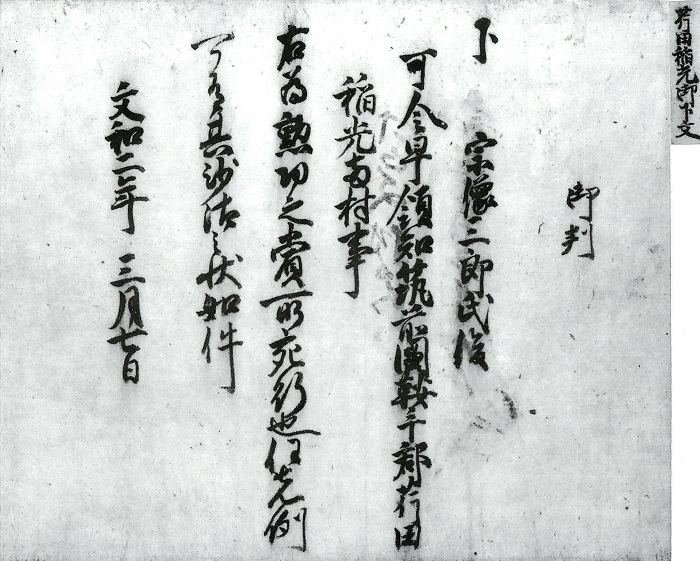 芹田稲光御下文
御判
下 宗像三郎氏俊
可令早領知筑前國鞍手郡芹田
稲光両村事
右為勲功之賞所宛行也任先例
可有其沙汰之状如件
文和二年三月七日